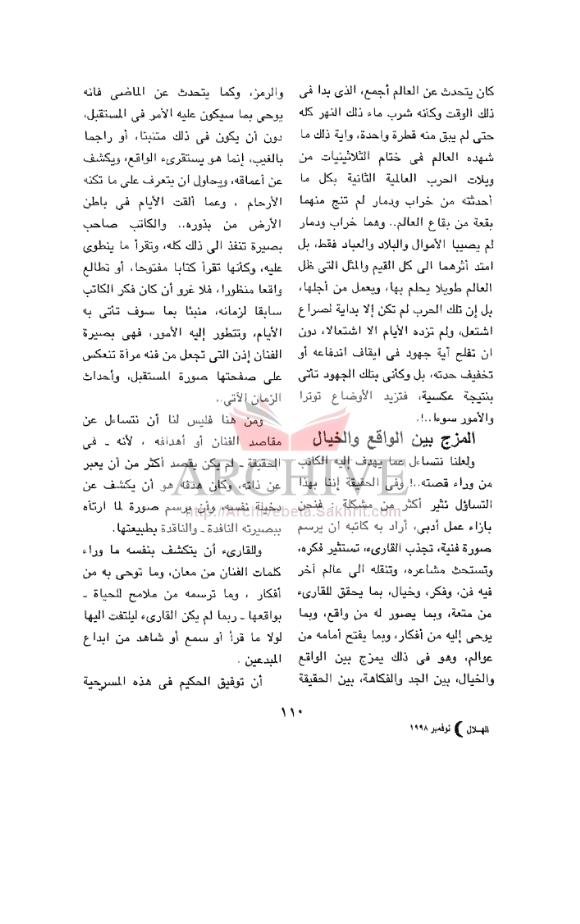 كان يتحدث عن العالم أجمع، الذى بدا فى
ذلك الوقت وكأنه شرب ماء ذلك النهر كله
حتى لم يبق منه قطرة واحدة، وآية ذلك ما
شهده العالم فى ختام الثلاثينيات من
ويلات الحرب العالمية الثانية بكل ما
أحدثته من خراب ودمار لم تنج منهما
بقعة من بقاع العالم.. وهما خراب ودمار
لم يصيبا الأموال والبلاد والعباد فقط، بل
امتد أثرهما الى كل القيم والمثل التى ظل
العالم طويلا يحلم بها، ويعمل من أجلها،
بل إن تلك الحرب لم تكن إلا بداية لصراع
اشتعل، ولم تزده الأيام الا اشتعالا، دون
ان تفلح أية جهود فى ايقاف اندفاعه أو
تخفيف حدته، بل وكأنى بتلك الجهود تأتى
بنتيجة عكسية، فتزيد الأوضاع توترا
والأمور سوءا..!.
المزج بين الواقع والخيال
ولعلنا نتساءل عما يهدف إليه الكاتب
من وراء قصته..! وفى الحقيقة إننا بهذا
التساؤل نثير أكثر من مشكلة : فنحن
بازاء عمل أدبى، أراد به كاتبه ان يرسم
صورة فنية، تجذب القارىء، تستثير فكره،
وتستحث مشاعره، وتنقله الى عالم آخر
فيه فن، وفكر، وخيال، بما يحقق للقارىء
من متعة، وبما يصور له من واقع، وبما
يوحى إليه من أفكار، وبما يفتح أمامه من
عوالم، وهو فى ذلك يمزج بين الواقع
والخيال، بين الجد والفكاهة، بين الحقيقة
والرمز، وكما يتحدث عن الماضى فانه
يوحى بما سيكون عليه الأمر فى المستقبل،
دون أن يكون فى ذلك متنبئا، أو راجما
بالغيب، إنما هو يستقرىء الواقع، ويكشف
عن أعماقه، ويحاول ان يتعرف على ما تكنه
الأرحام ، وعما ألقت الأيام فى باطن
الأرض من بذوره.. والكاتب صاحب
بصيرة تنفذ الى ذلك كله، وتقرأ ما ينطوى
عليه، وكأنها تقرأ كتابا مفتوحا، أو تطالع
واقعا منظورا، فلا غرو أن كان فكر الكاتب
سابقا لزمانه، منبئا بما سوف تأتى به
الأيام، وتتطور إليه الأمور، فهى بصيرة
الفنان إذن التى تجعل من فنه مرآة تنعكس
على صفحتها صورة المستقبل، وأحداث
الزمان الآتى..
ومن هنا فليس لنا أن نتساءل عن
مقاصد الفنان أو أهدافه ، لأنه ـ فى
الحقيقة ـ لم يكن يقصد أكثر من أن يعبر
عن ذاته، وكان هدفه هو أن يكشف عن
دخيلة نفسه، وأن يرسم صورة لما ارتآه
ببصيرته النافذة ـ والناقدة بطبيعتها.
وللقارىء أن يتكشف بنفسه ما وراء
كلمات الفنان من معان، وما توحى به من
أفكار ، وما ترسمه من ملامح للحياة ـ
بواقعها ـ ربما لم يكن القارىء ليلتفت اليها
لولا ما قرأ أو سمع أو شاهد من ابداع
المبدعين .
أن توفيق الحكيم فى هذه المسرحية
ARCHIVE
http://Archivebeta.Sakhrit.com
١١٠
الهلال ) نوفمبر ١٩٩٨